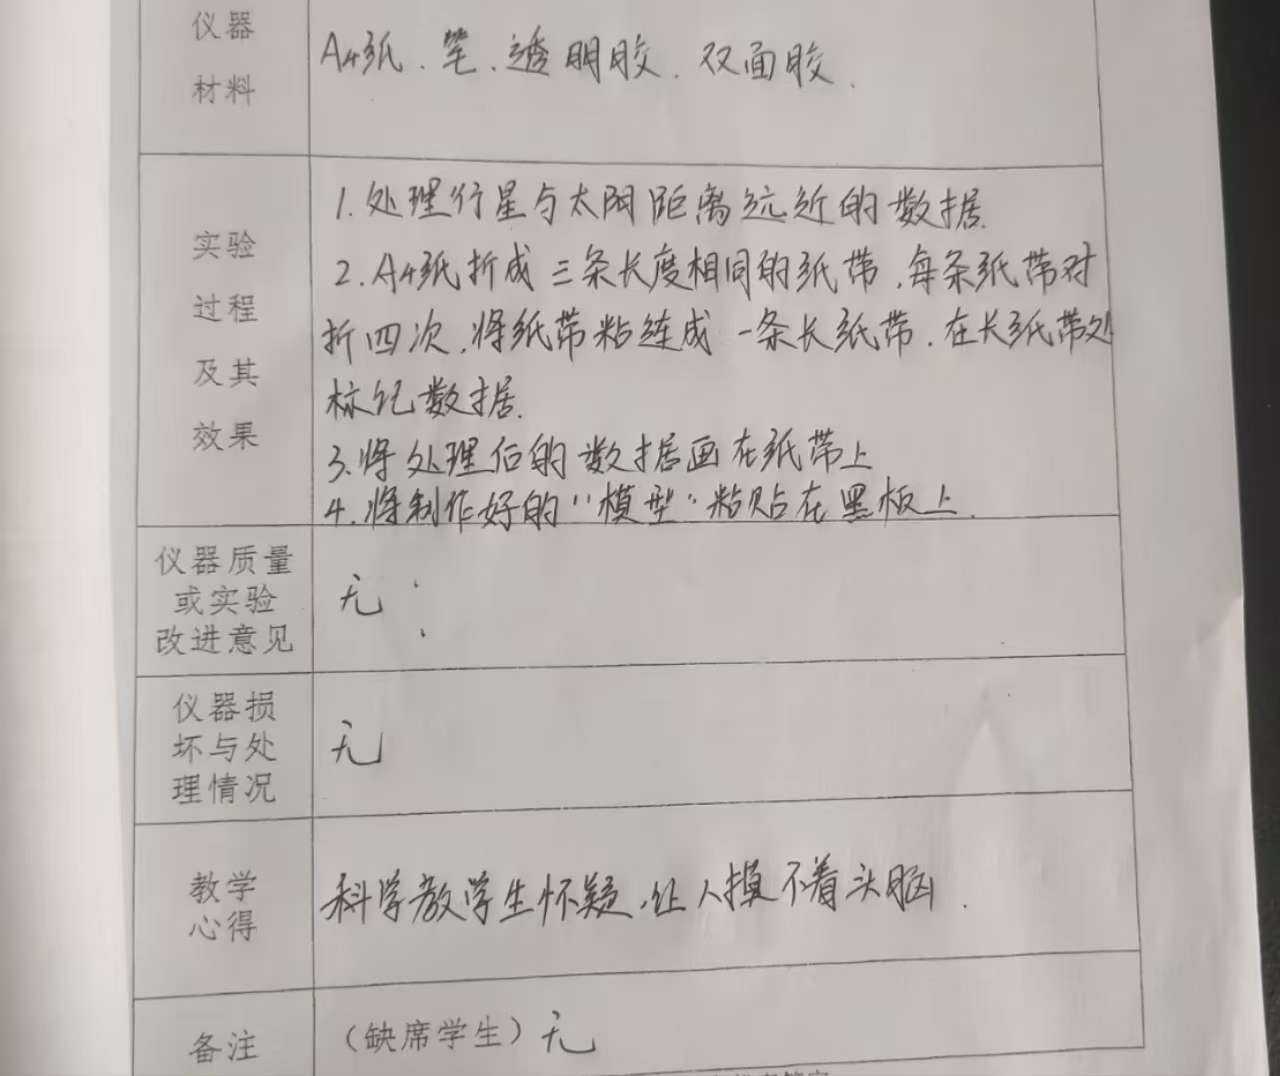 仪器
材料
A4纸、笔、透明胶、双面胶.
实验
过程
及其
效果
1.处理行星与太阳距离远近的数据.
2.A4纸折成三条长度相同的纸带,每条纸带对
折四次,将纸带粘连成一条长纸带.在长纸带处
标记数据.
3.将处理后的数据画在纸带上
4.将制作好的"模型"粘贴在黑板上.
仪器质量
或实验
改进意见
无
仪器损
坏与处
理情况
无
教学
心得
科学教学生怀疑,让人摸不着头脑.
备注
(缺席学生)无